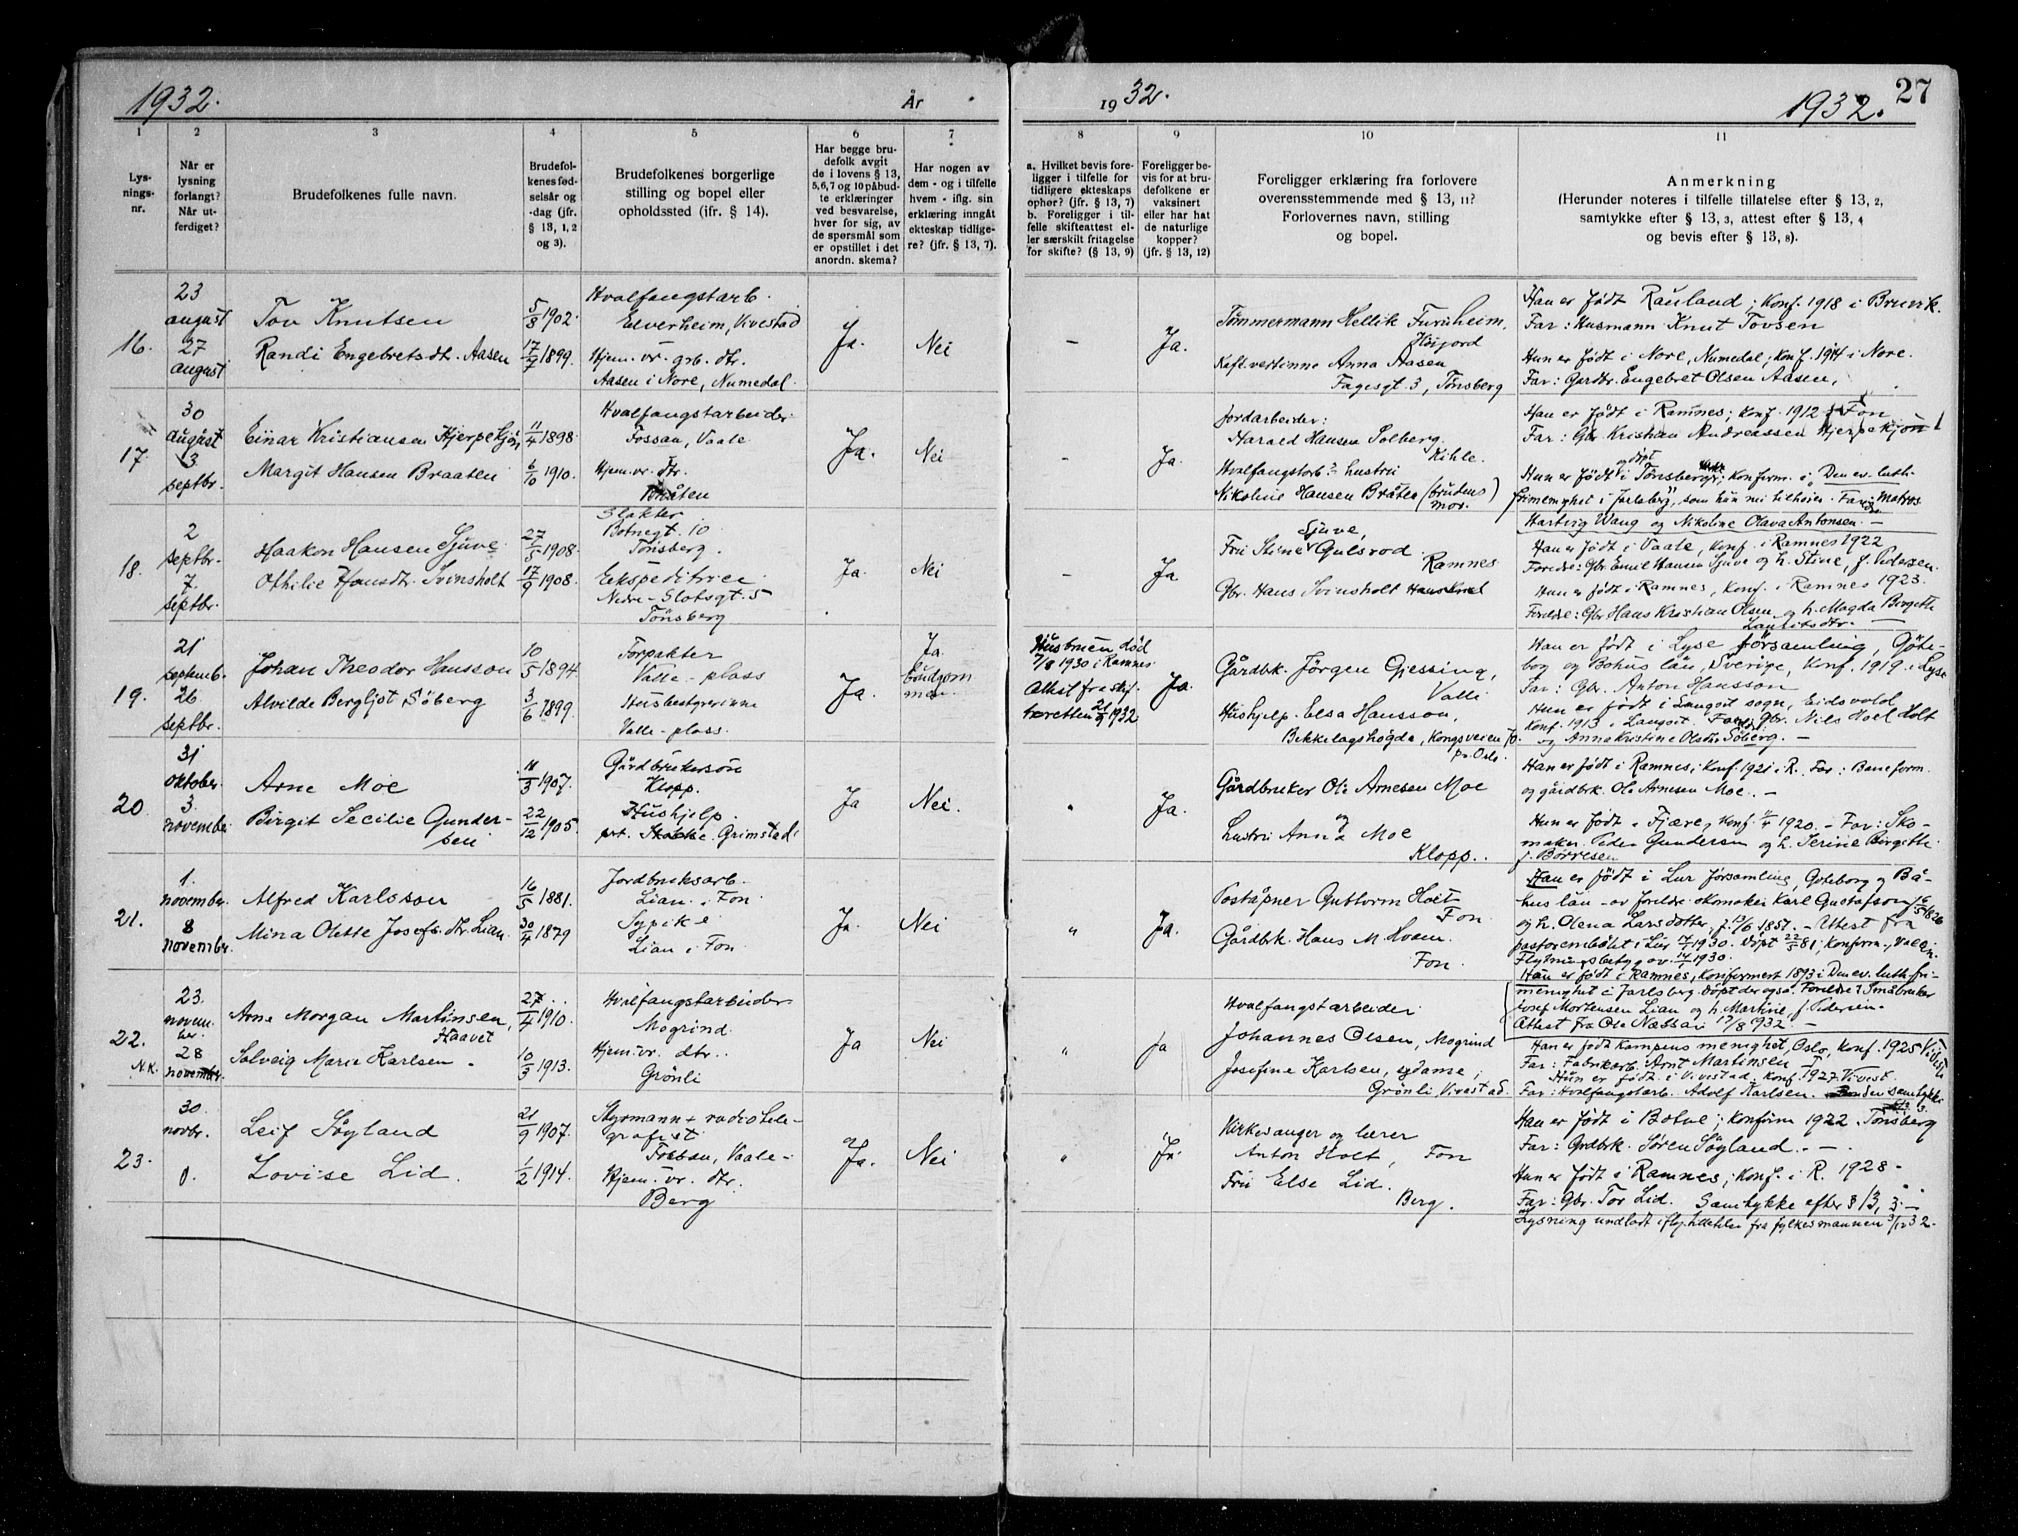 1932.
År
19 32.
1932.
27
1
2
3
4
5
6
7
8
9
10
11
Lys-
nings-
nr.
Når er
lysning
forlangt?
Når ut-
ferdiget?
Brudefolkenes fulle navn.
Brudefol-
kenes fød-
selsår og
-dag (jfr.
§ 13, 1, 2
og 3).
Brudefolkenes borgerlige
stilling og bopel eller
opholdssted (ifr. § 14).
Har begge bru-
defolk avgit
de i lovens § 13,
5, 6, 7 og 10 påbud-
te erklæringer
ved besvarelse,
hver for sig, av
de spørsmål som
er opstillet i det
anordn. skema?
Har nogen av
dem - og i tilfelle
hvem - iflg. sin
erklæring inngåt
ekteskap tidlige-
re? (jfr. § 13, 7).
a. Hvilket bevis fore-
ligger i tilfelle for
tidligere ekteskaps
ophør? (jfr. § 13, 7)
b. Foreligger i til-
felle skifteattest el-
ler særskilt fritagelse
for skifte? (§ 13, 9)
Foreligger be-
vis for at bru-
defolkene er
vaksinert
eller har hat
de naturlige
kopper?
(jfr. § 13, 12)
Foreligger erklæring fra forlovere
overensstemmende med § 13, 11?
Forlovernes navn, stilling
og bopel.
Anmerkning
(Herunder noteres i tilfelle tillatelse efter § 13, 2,
samtykke efter § 13, 3, attest efter § 13, 4
og bevis efter § 13, 8).
16.
23
august
27
august
Tov Knutsen
Randi Engebretsdt. Aasen
5/8 1902.
17/7 1899.
Hvalfangstarb.
Elverheim, Vivestad
Hjem. vr. grb. dtr.
Aasen i Nore, Numedal.
Ja.
Nei
-
Ja.
Tømmermann Hellik Furuheim,
Kafévertinne Anna Aasen
Fagesgt. 3, Tønsberg
Han er født Rauland; Konf. 1918 i Bruvik.
Far: Husmann Knut Tovsen
Hun er født i Nore, Numedal; Konf. 1914 i Nore.
Far: Gardbr. Engebret Olsen Aasen,
17.
30
august
3
septbr.
Einar Kristiansen Hjerpekjøn
Margit Hansen Braaten
11/4 1898.
6/10 1910.
Hvalfangstarbeider
Fossan, Vaale
Hjem. vr. dtr.
Bråten
Ja.
Nei
-
Ja.
Jordarbeider:
Harald Hansen Solberg
Kihle.
Hvalfangstarb.s hustru
Nikoline Hansen Bråten (brudens
mor.)
Han er født i Ramnes; konf. 1912 i Fon
Far: Gbr. Kristian Andreassen Hjerpekjøn
Hun er født og døpt i Tønsberg; Konfirm. i „Den ev. luth.
frimenighet i Jarlsberg", som hun nu tilhører. Far: Matros
Hartvig Wang og Nikoline Olava Antonsen. -
18.
2
septbr.
7.
septbr.
Haakon Hansen Sjuve
Othilie Hansdtr. Svinsholt
27/5 1908.
17/9 1908.
Slakter
Botnegt. 10
Tønsberg.
Ekspeditrice
Nedre-Slotsgt. 5
Tønsberg
Ja.
Nei
-
Ja
Fru Stine Sjuve, Gulsrod
Ramnes
Gbr. Hans Svinsholt
Han er født i Vaale, konf. i Ramnes 1922
Foreldre: Gbr. Emil Hansen Sjuve og h. Stine, f. Pedersen.
Hun er født i Ramnes, Konf. i Ramnes 1923.
Foreldre: Gbr. Hans Kristian Olsen og h. Magda Birgitte
Lauritsdtr. -
19.
21
septemb.
26
septbr.
Johan Theodor Hansson
Alvilde Bergljot Søberg
10/5 1894.
3/6 1899.
Forpakter
Valle-plass
Husbestyrerinne
Valle-plass.
Ja.
Ja
brudgom
men.
Hustruen død
7/8 1930 i Ramnes
Attest fra skif-
teretten 21/9 1932
Ja.
Gårdbk. Jørgen Gjessing,
Valle
Hushjelp. Elsa Hansson,
Bekkelagshøgda, Kongsveien 70.
pr. Oslo
Han er født i Lyse församling, Göte-
borg og Bohus län, Sverige, Konf. 1919 i Lyse
Far: Gbr. Anton Hansson
Hun er født i Langset sogn, Eidsvold
Konf. 1913 i Langset. Foreldre: Gbr. Nils Hoel Holt
og Anna Kristine Olsdtr. Søberg. -
20
31
oktober
3.
november
Arne Moe
Birgit Secilie Gunder-
sen
11/3 1907.
22/12 1905.
Gårdbrukersøn
Klopp.
Hushjelp
Grimstad
Ja
Nei.
"
Ja.
Gårdbruker Ole Arnesen Moe
og
hustru Anna Moe
Klopp.
Han er født i Ramnes; Konf. 1921 i R. Far: Baneform.
og gårdbrk. Ole Arnesen Moe. -
Hun er født i Fjære, Konf. 1920. - Far: Sko-
maker Peder Gundersen og h. Serine Birgitte
f. Børresen
21.
1.
november.
8
november.
Alfred Karlsson
Mina Olette Josefs. dtr. Lian.
16/5 1881.
30/4 1879
Jordbruksarb.
Lian i Fon.
Sypike
Lian i Fon.
Ja.
Nei
"
Ja.
Poståpner Guttorm Holt
Fon
Gårdbk. Hans M. Hvam.
Fon.
Han er født i Lur församling, Göteborg og Bo-
hus län - av foreldre skomaker Karl Gustafson
og h. Olena Larsdotter, f. 13/6 1857. - Attest fra
pastorembetet i Lur 1930. Døpt 22/5 81; Konfirm.
Flytningsbetyg av 14/1 1930.
Hun er født i Ramnes, Konfirmert 1893 i Den ev. luth. fri-
menighet i Jarlsberg. Døpt der også. Foreldre: Småbruker
Josef Mortensen Lian og h. Martine, f. Pedersen
Attest fra Ole Næssan 17/8 1932. -
22.
N.K.
23.
novem
ber.
28
november.
Arne Morgan Martinsen,
Haavet
Solveig Marie Karlsen -
27/4 1910.
10/3 1913.
Hvalfangstarbeider
Mogrind.
Hjem. vr. dtr.
Grønli
Ja
Nei
"
Ja
Hvalfangstarbeider
Johannes Olsen, Mogrind
Josefine Karlsen, sydame;
Grønli Vivestad.
Han er født Kampens menighet, Oslo, Konf. 1925 i Vivest.
Far: Fabrikarb. Arnt Martinsen
Hun er født i Vivestad. Konf. 1927. Vivest.
Far: Hvalfangstarb. Adolf Karlsen. samtykke
23.
30.
novbr.
0.
Leif Søyland
Lovise Lid.
21/9 1907.
1/2 1914.
Styrmann + radiotele-
grafist
Fossan, Vaale.
Hjem. vr. dtr.
Berg
Ja.
Nei
"
Ja.
Kirkesanger og lærer
Anton Holt, Fon
Fru Else Lid.
Berg.
Han er født i Botne; Konfirm 1922. Tønsberg
Far: Grdbrk. Søren Søyland. -
Hun er født i Ramnes; Konf. i R. 1928.
Far: Gbr. Tor Lid. Samtykke efter § 13, 3. -
Lysning undlatt iflg. tillatelse fra fylkesmannen 3/12 32.